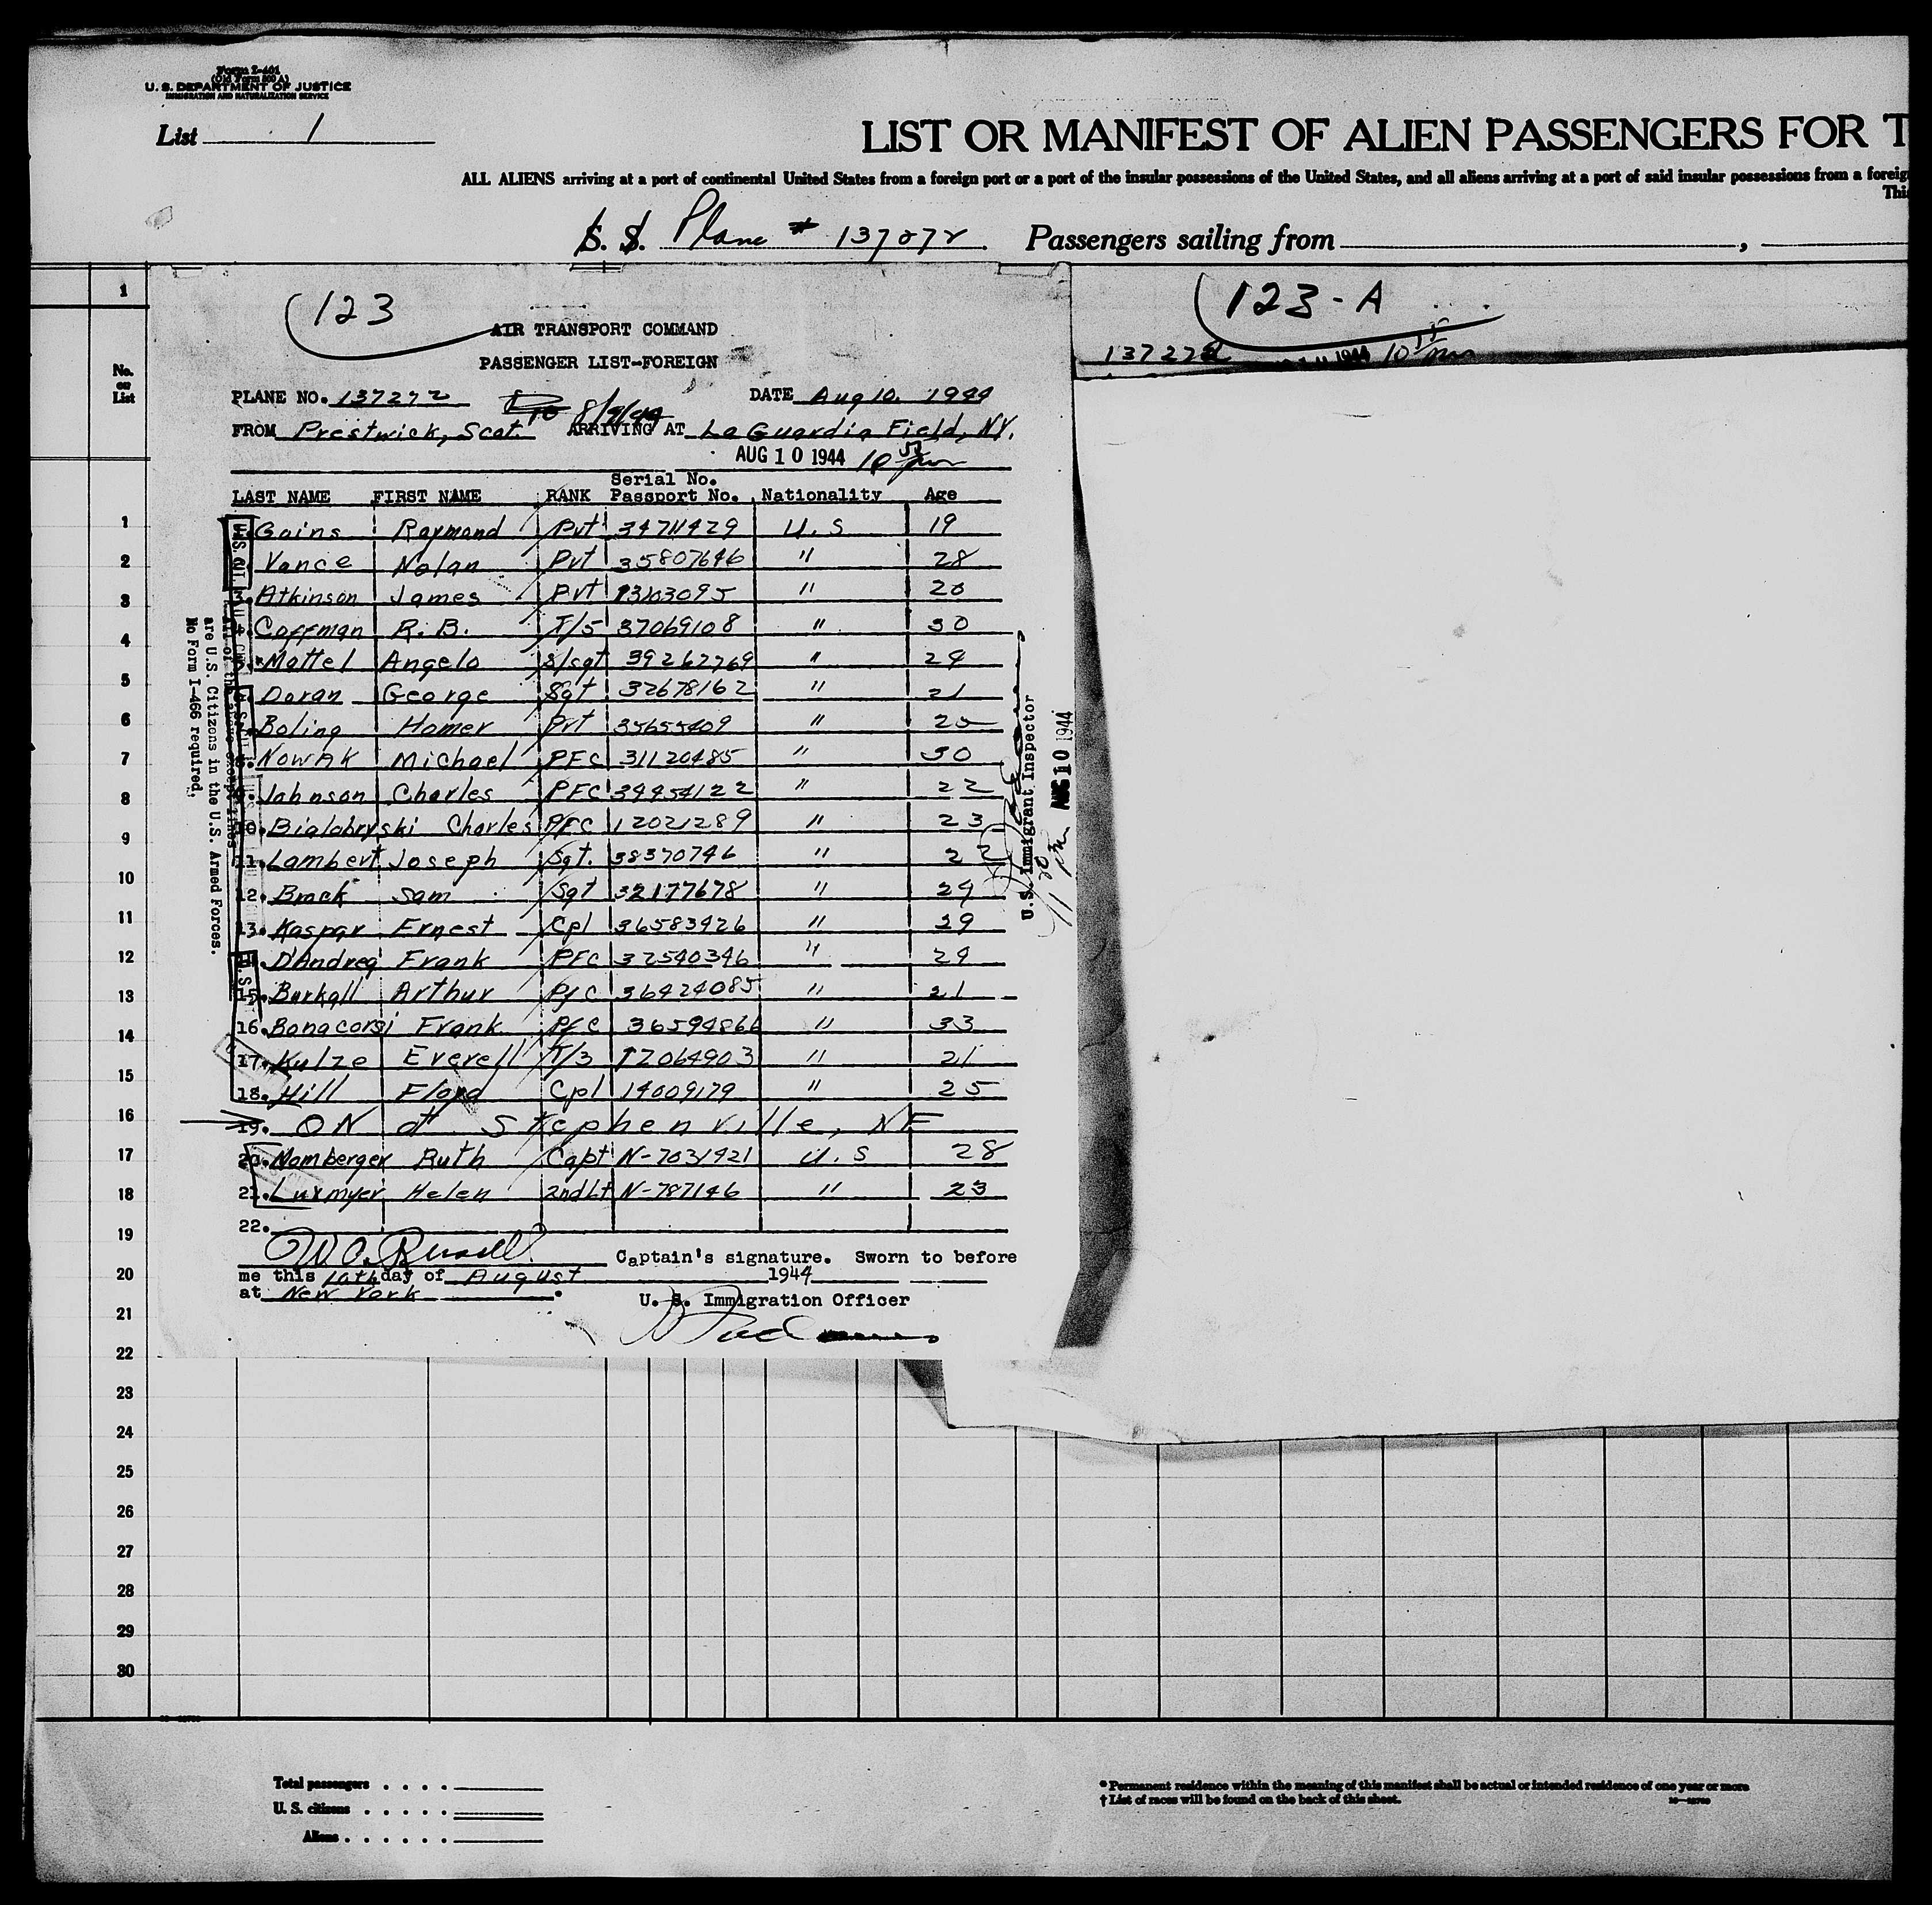 Form I-401
(Old Form 500 A)
U. S. DEPARTMENT OF JUSTICE
IMMIGRATION AND NATURALIZATION SERVICE
List 1
LIST OR MANIFEST OF ALIEN PASSENGERS FOR T
ALL ALIENS arriving at a port of continental United States from a foreign port or a port of the insular possessions of the United States, and all aliens arriving at a port of said insular possessions from a foreig
Thi
S. S. Plane # 137272 Passengers sailing from ,
1
No. on List
123
123-A
AIR TRANSPORT COMMAND
PASSENGER LIST-FOREIGN
137272 1944 10 55 pm
PLANE NO. 137272 8/9/44 DATE Aug 10. 1944
FROM Prestwick, Scot. ARRIVING AT La Guardia Field, N.Y.
AUG 10 1944 10 55 pm
Serial No.
LAST NAME FIRST NAME RANK Passport No. Nationality Age
1. Gains Raymond Pvt 34711429 U.S 19
2. Vance Nolan Pvt 35807646 " 28
3. Atkinson James Pvt 13103095 " 20
4. Coffman R. B. T/5 37069108 " 30
5. Mattel Angelo S/sgt 39262769 " 24
6. Doran George Sgt 32678162 " 21
7. Boling Homer Pvt 35655409 " 20
8. Nowak Michael PFC 31120485 " 30
9. Johnson Charles PFC 39454122 " 22
10. Bialobryski Charles PFC 12021289 " 23
11. Lambert Joseph Sgt. 38370746 " 22
12. Brack Sam Sgt 32177678 " 29
13. Kaspar Ernest Cpl 36583426 " 29
14. D'Andrea Frank PFC 32540346 " 29
15. Burkall Arthur Pfc 36424085 " 21
16. Bonacorsi Frank Pfc 36594866 " 33
17. Kulze Everell T/3 12064903 " 21
18. Hill Floyd Cpl 14009179 " 25
19. ON at Stephenville, NF
20. Nomberger Ruth Capt N-7031421 U.S 28
21. Luxmyer Helen 2nd Lt N-787146 " 23
22.
W. C. Russell Captain's signature. Sworn to before
me this 10th day of August 1944
at New York .
U. S. Immigration Officer
All of the above except lines
are U.S. Citizens in the U.S. Armed Forces.
No Form I-466 required.
U.S. Immigrant Inspector
AUG 10 1944
1
2
3
4
5
6
7
8
9
10
11
12
13
14
15
16
17
18
19
20
21
22
23
24
25
26
27
28
29
30
Total passengers . . . .
U. S. citizens . . . . .
Aliens . . . . . .
* Permanent residence within the meaning of this manifest shall be actual or intended residence of one year or more
† List of races will be found on the back of this sheet.